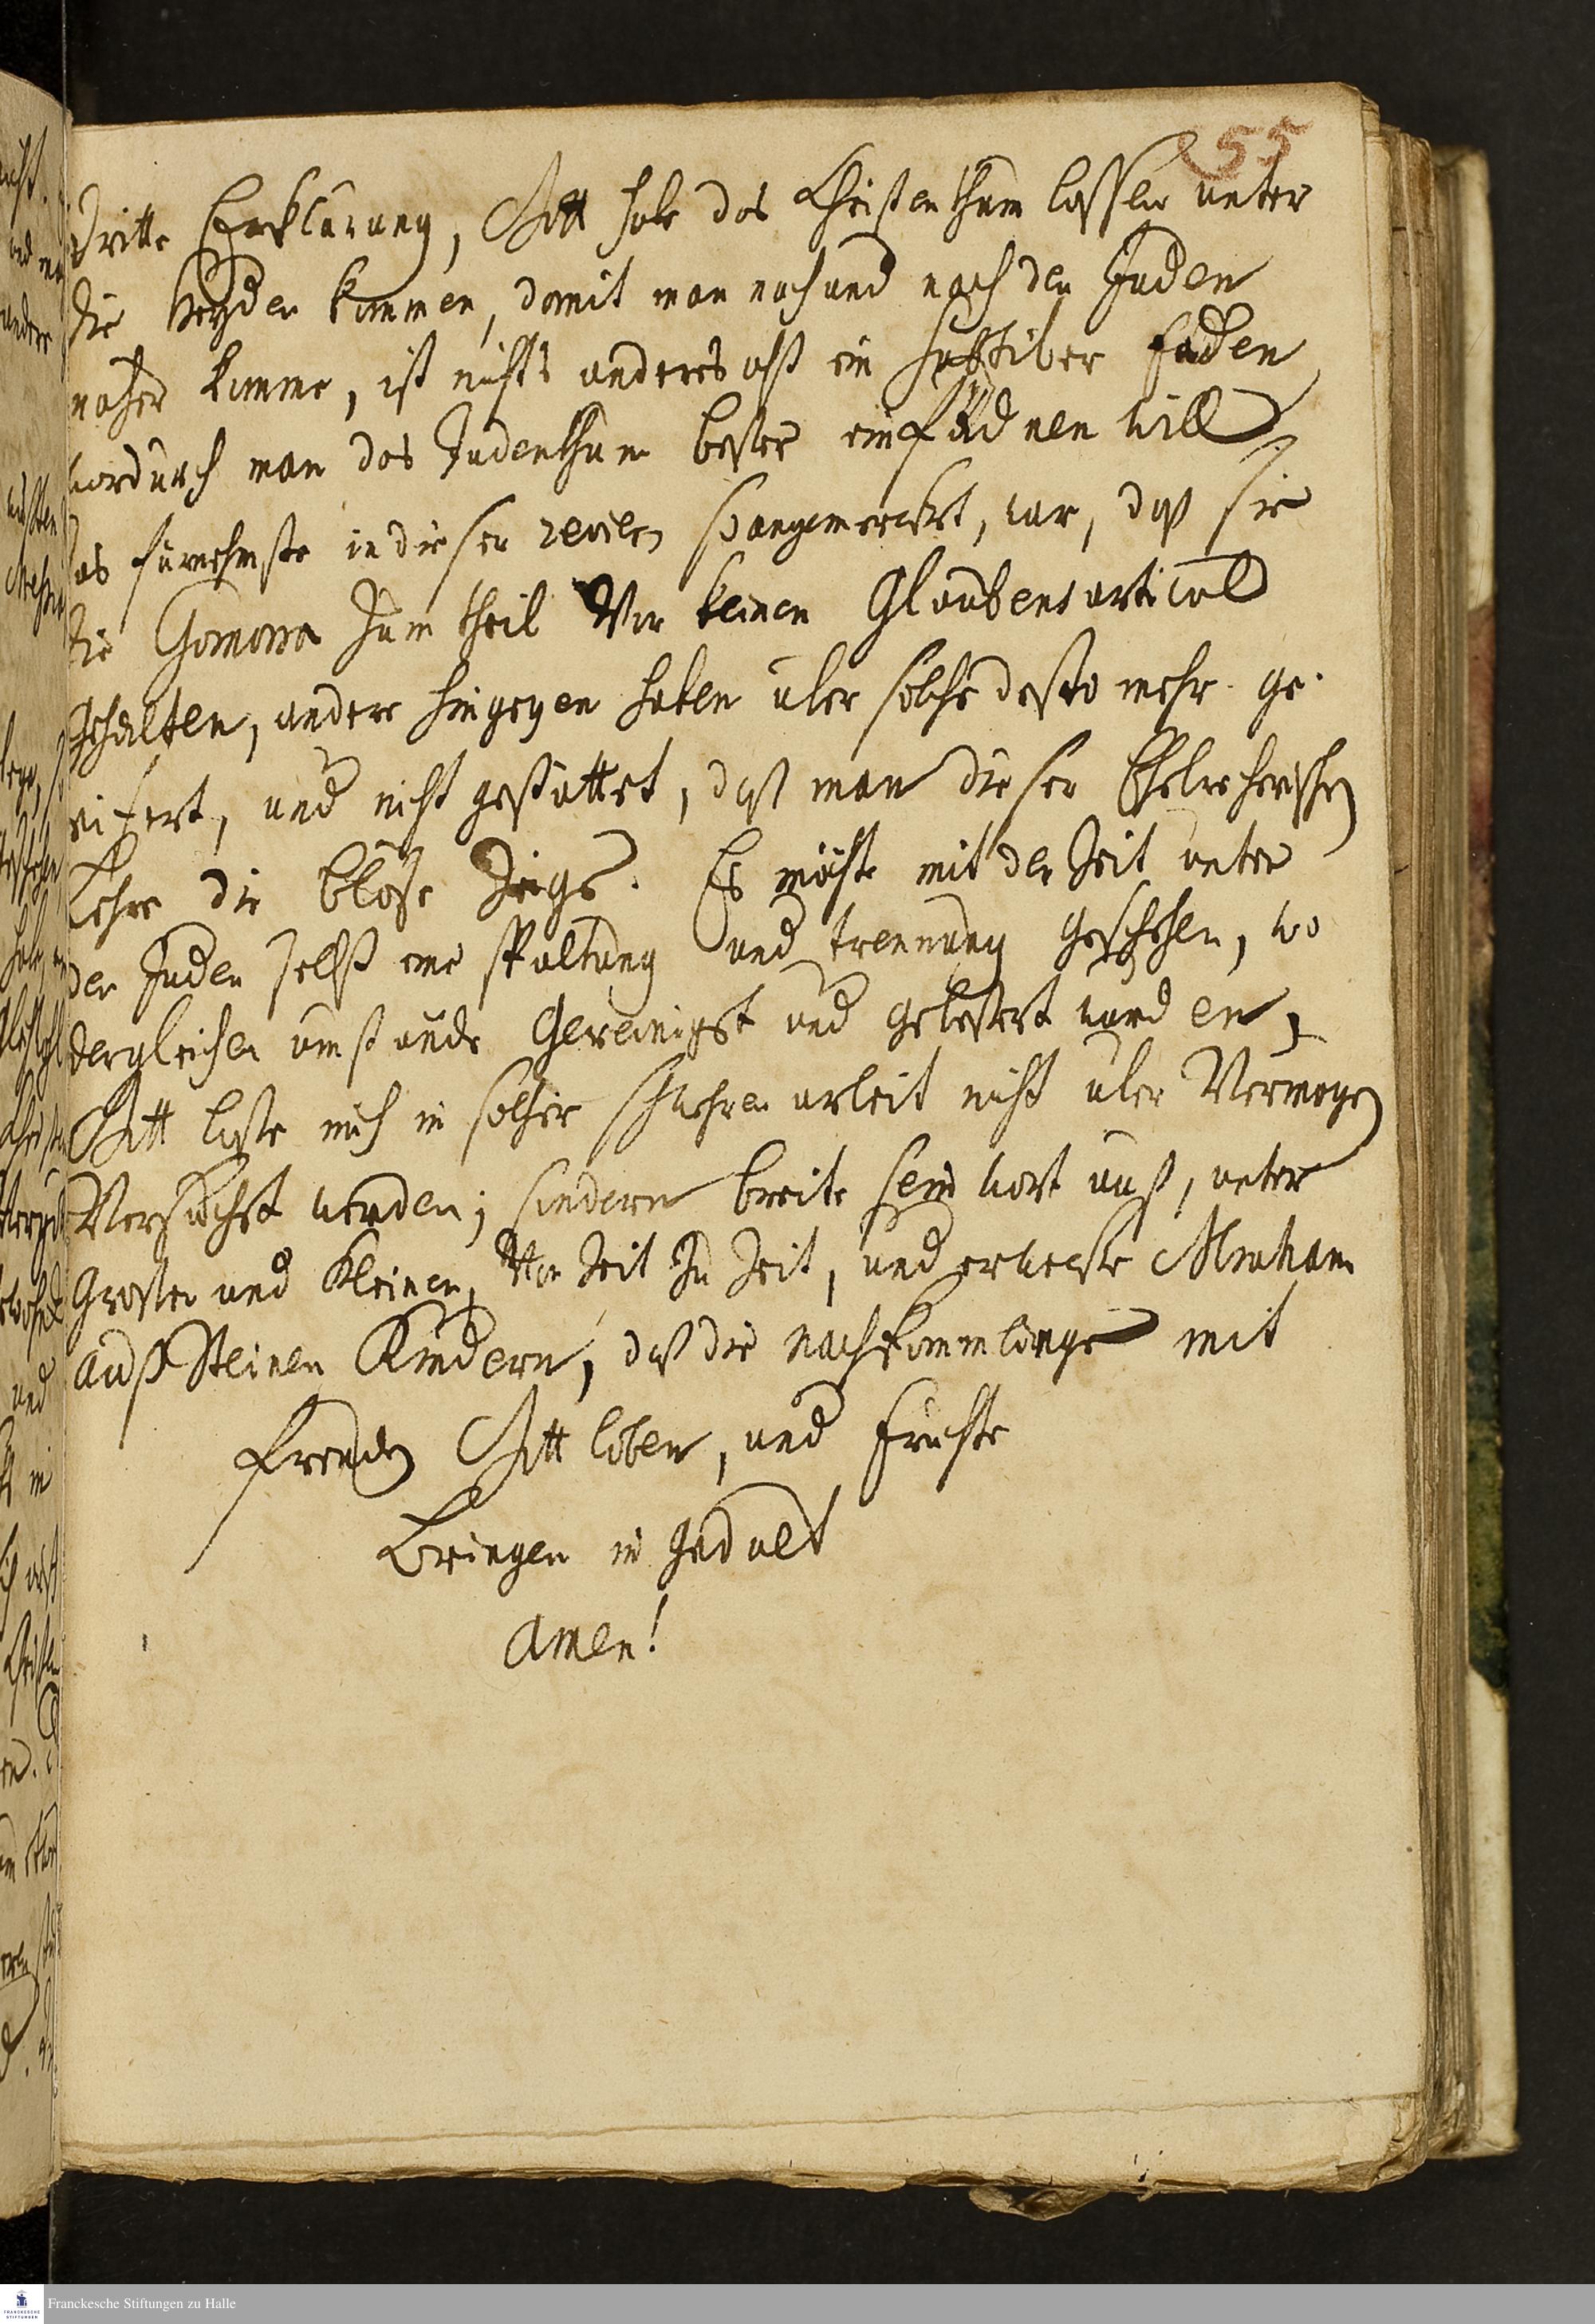 55
dritte Erklärung, Gott habe das Christenthum lassen unter
die Heyden kommen, damit man nach und nach den Juden
näher komme, ist nichts anderes alß ein subtiler faden,
wordurch man das Judenthum besser einfädnen will
das fürnehmste in dieser reviden so angemerckt, war, daß sie
die Gemorra zum theil Vor keinen Glaubensarticul
gehalten, andere hingegen haben über solche desto mehr ge-
eifert, und nicht gestattet, daß man dieser Ehebrecherischen
Lehre die blöse Zeige. Es möchte mit der Zeit unter
den Juden selbst eine spaltung und trennung geschehen, wo
dergleichen umstände Gereiniget und gebessert würden,
Gott laße mich in solcher schwehren arbeit nicht über Vermögen
Versuchet werden; sondern breite sein wort auß, unter
Großen und Kleinen, Von Zeit Zu Zeit, und erwecke Abraham
auß Steinen Kindern, daß die nachkömmlinge mit
freuden Gott loben, und früchte
Bringen in gedult
Amen!
Franckesche Stiftungen zu Halle